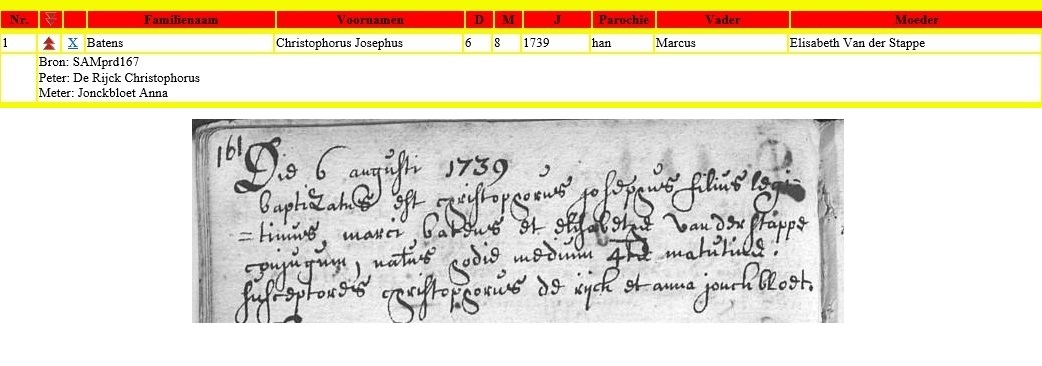 Nr. Familienaam Voornamen D M J Parochie Vader Moeder
1 X Batens Christophorus Josephus 6 8 1739 han Marcus Elisabeth Van der Stappe
Bron: SAMprd167
Peter: De Rijck Christophorus
Meter: Jonckbloet Anna
161 Die 6 augusti 1739
baptizatus est christophorus josephus filius legi
=timus marci batens et elisabethae Van der stappe
conjugum, natus hodie medium 4tae matutinae.
susceptores christophorus de rijck et anna jonckbloet.